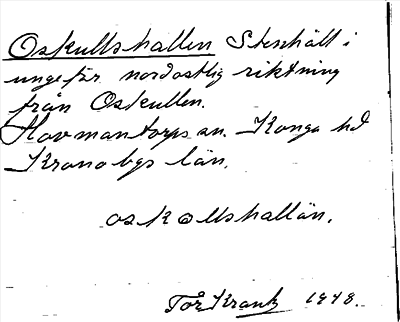 Oskullshallen Stenhäll i
ungefär nordostlig riktning
från Oskullen.
Hovmantorps sn. Konga hd
Kronobgs län.
oskollshallän.
Tör Krantz 1948.